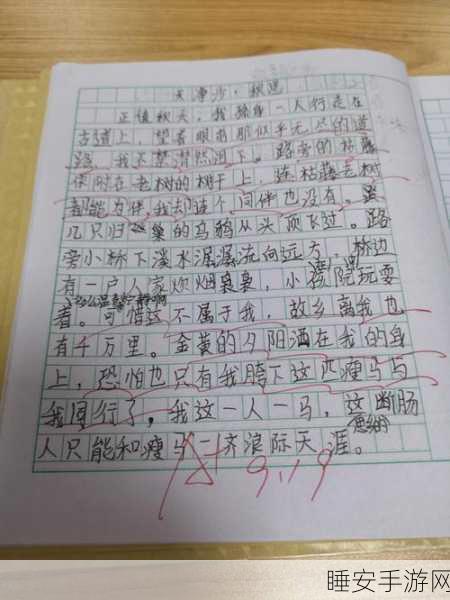 天净沙·秋思
正值秋天,我独自一人行走在
古道上,望着眼前那似乎无尽的道
路,我不禁潸然泪下。路旁的枯藤
依附在老树的树干上,连枯藤老树
都能为伴,我却连个同伴也没有。
几只归巢的乌鸦从头顶飞过。路
旁小桥下淡水潺潺流向远方,桥边
有一户人家炊烟袅袅,小孩院玩耍
着。可惜这不属于我,故乡离我也
有千万里。金黄的夕阳洒在我的身
上,恐怕也只有我胯下这匹瘦马与
我同行了,我这一人一马,这断肠
人只能和瘦马一齐浪际天涯。
9.19
睡安手游网